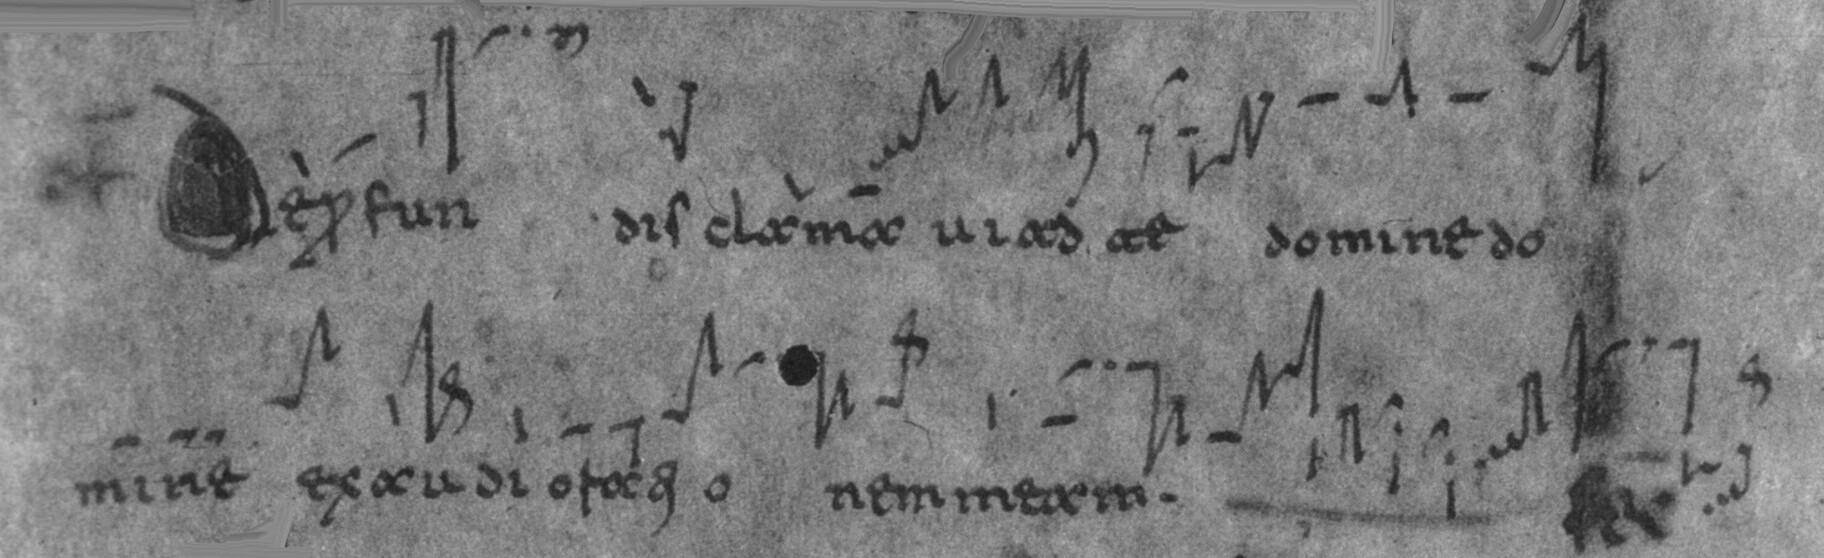 Deꝓfun dis clama ui ad te domine do
mine exaudi oratio nem meam.